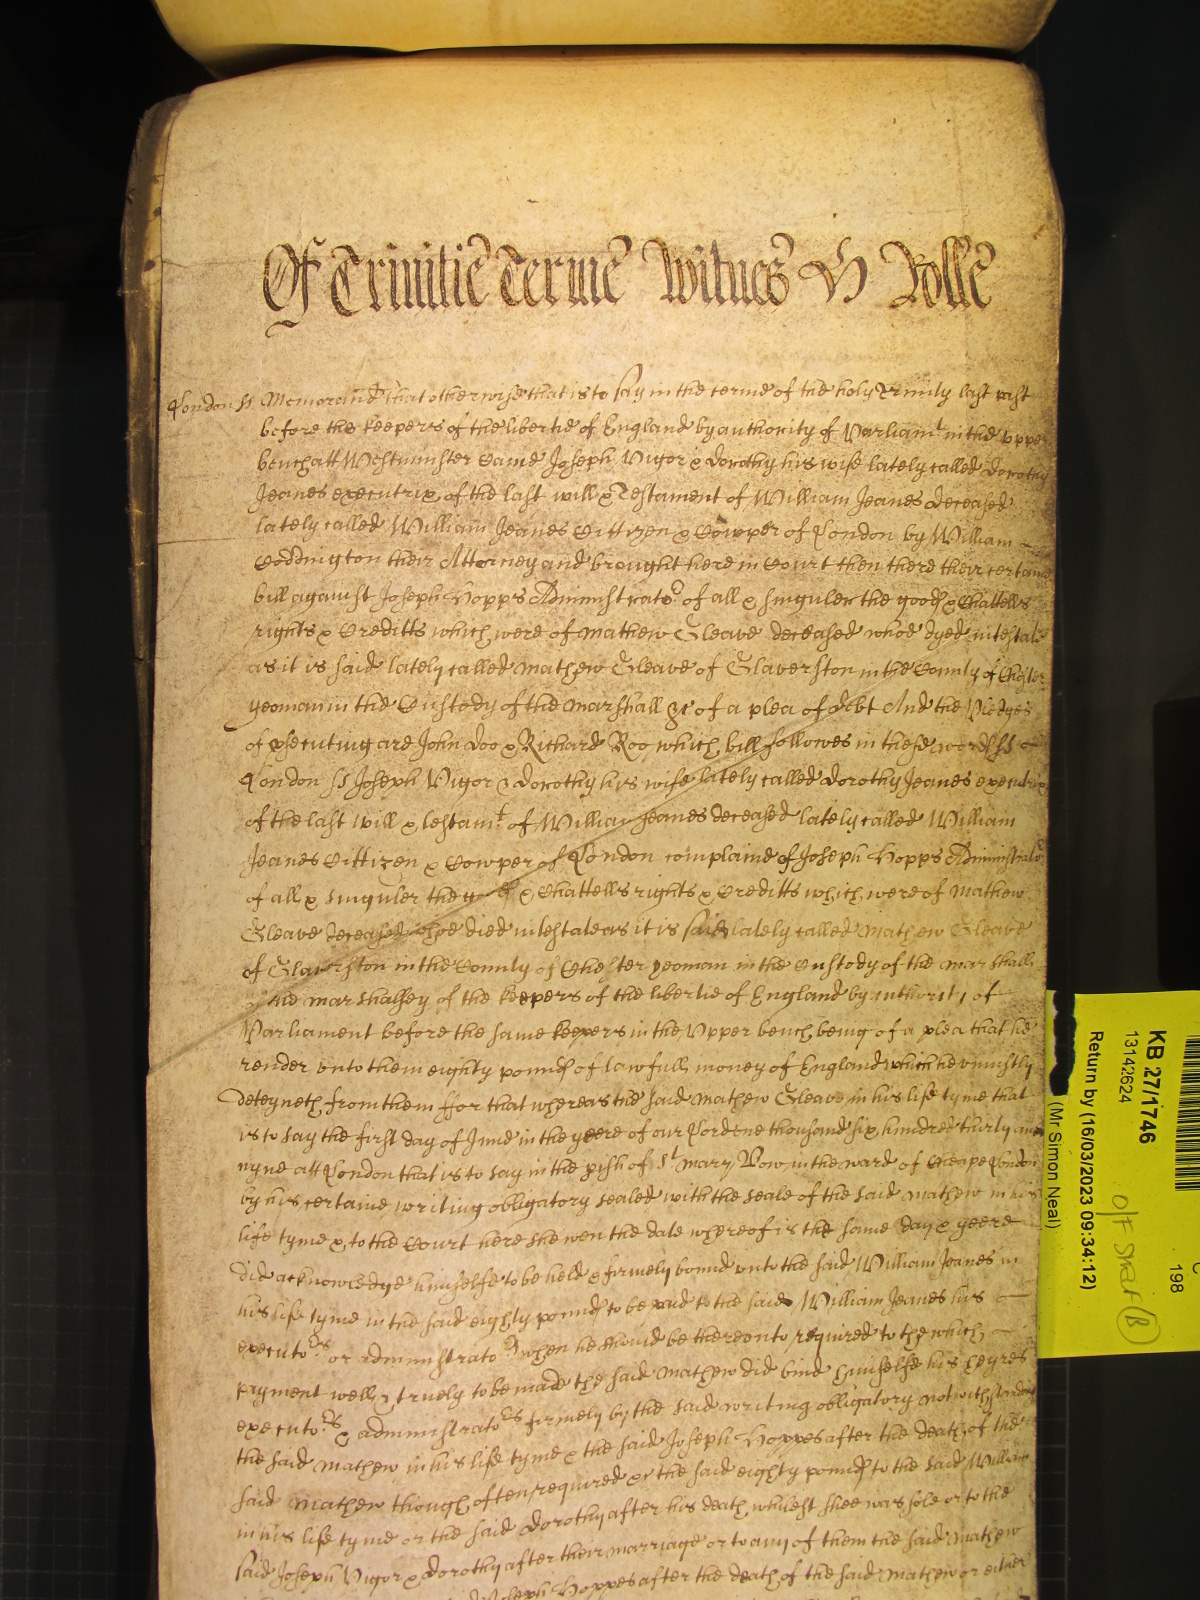 Of Trinitie Terme Witnes H Rolle
London ss Memorand that otherwise that is to say in the terme of the holy Trinity last past
before the keepers of the libertie of England by authority of Parliamt in the upper
bench att Westminster Came Joseph Vigor & Dorothy his wife lately called Dorothy
Jeanes executrix of the last will & Testament of William Jeanes deceased
lately called William Jeanes Cittizen & Cowper of London by William
Coddington their Attorney and brought here in Court then there their certaine
bill against Joseph Hopps Administrator of all & singuler the goods & Chattells
rights & Creditts which were of Mathew Gleave deceased whoe dyed intestate
as it is said lately called Mathew Gleave of Glaverston in the County of Chester
yeoman in the Custody of the Marshall &c of a plea of debt And the Pledges
of psecuting are John Doo & Richard Roo which bill followes in these words ss
London ss Joseph Vigor & Dorothy his wife lately called Dorothy Jeanes executrix
of the last will & testamt of William Jeanes deceased lately called William
Jeanes Cittizen & Cowper of London complaine of Joseph Hopps Administrator
of all & singuler the goods & Chattells rights & Creditts which were of Mathew
Gleave deceased whoe died intestate as it is said lately called Mathew Gleave
of Glaverston in the County of Chester yeoman in the Custody of the Marshall
of the Marshalsey of the keepers of the libertie of England by authority of
Parliament before the same keepers in the Upper bench being of a plea that he
render unto them eighty pounds of lawfull money of England which he uniustly
deteyneth from them ffor that whereas the said Mathew Gleave in his life tyme that
is to say the first day of June in the yeere of our Lord one thousand six hundred thirty and
nyne att London that is to say in the pish of St Mary Bow in the ward of Cheape London
by his certaine writing obligatory sealed with the seale of the said Mathew in his
life tyme & to the Court here shewen the date whereof is the same day & yeere
did acknowledge himselfe to be held & firmely bound unto the said William Jeanes in
his life tyme in the said eighty pounds to be paid to the said William Jeanes his
executors or administrators when he should be thereonto required to the which
payment well & truely to be made the said Mathew did bind himselfe his heyres
executors & administrators firmely by the said writing obligatory notwithstanding
the said Mathew in his life tyme & the said Joseph Hoppes after the death of the
said Mathew though often required &c the said eighty pounds to the said William
in his life tyme or the said Dorothy after his death whilest shee was sole or to the
said Joseph Vigor & Dorothy after their marriage or to any of them the said Mathew
Joseph Hoppes after the death of the said Mathew or either
KB 27/1746
13142624
Return by (16/03/2023 09:34:12)
(Mr Simon Neal)
198